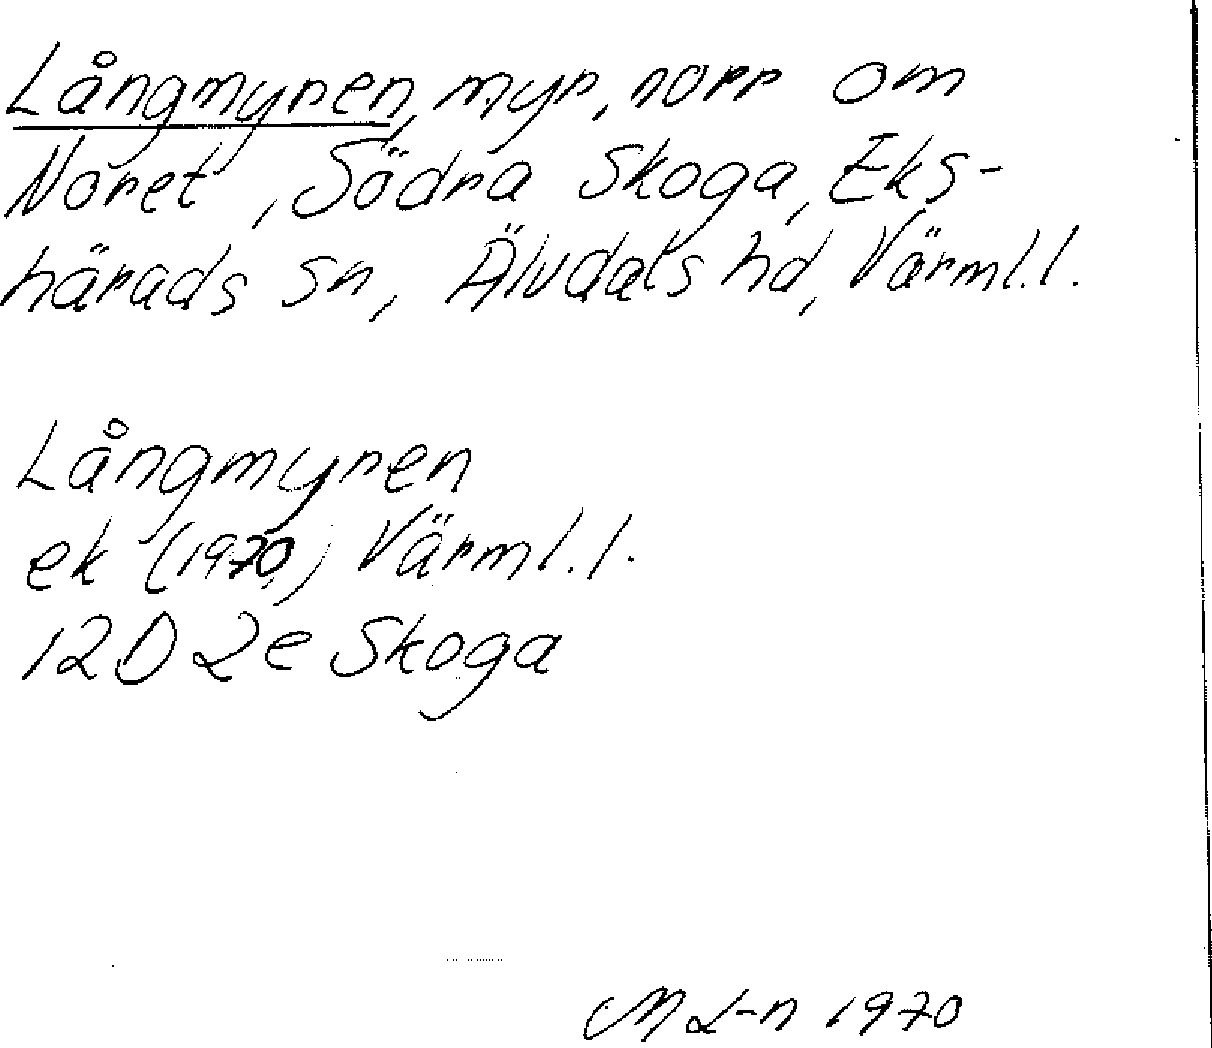 Långmyren, myr, norr om
Noret, Södra Skoga, Eks-
härads sn, Älvdals hd, Värml. l.
Långmyren
ek (1970) Värml. l.
12D 2e Skoga
M L-n 1970